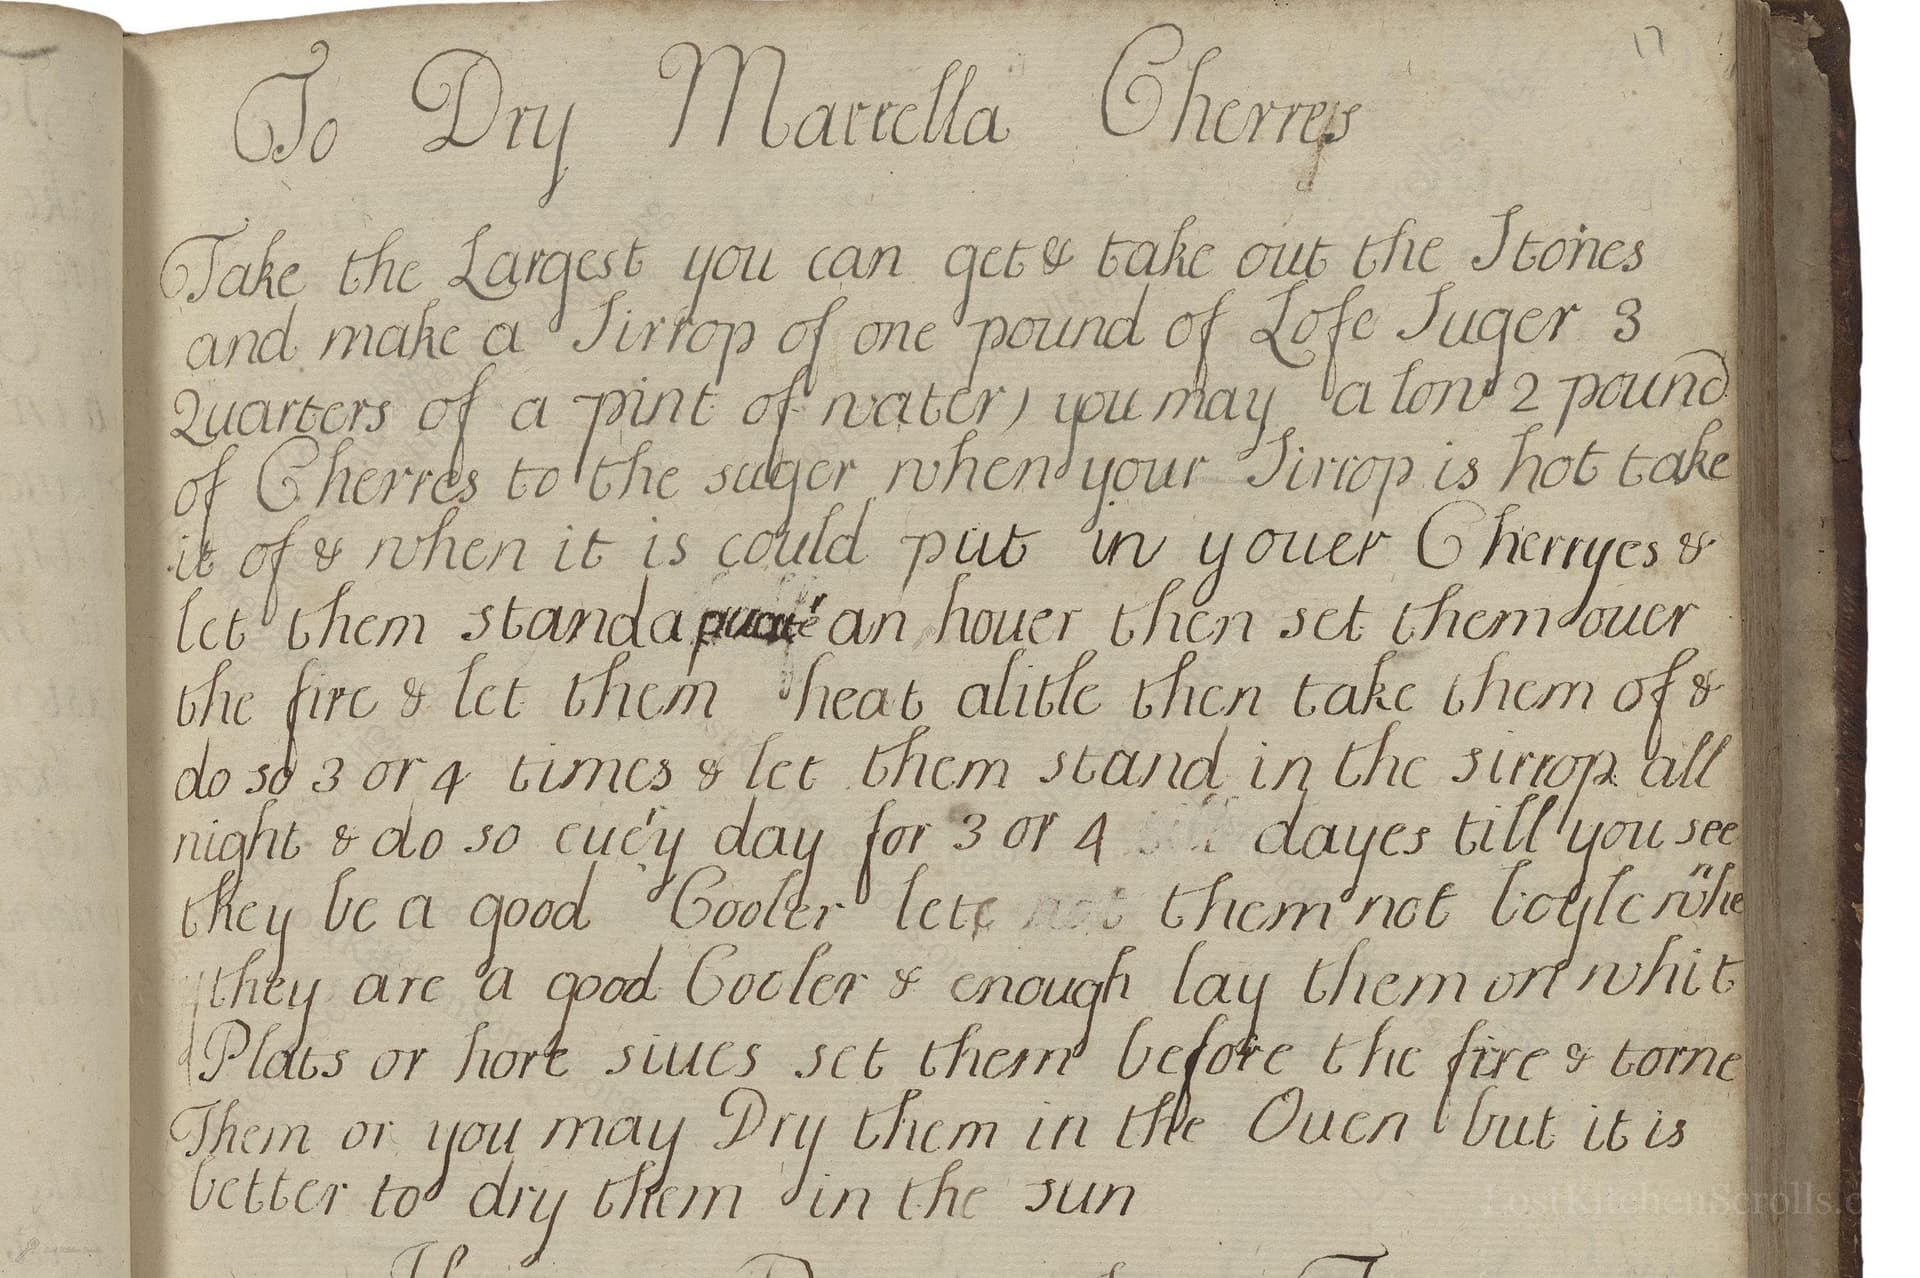 17
To Dry Marrella Cherres
Take the Largest you can get & take out the Stones
and make a Sirrop of one pound of Lofe Suger 3
Quarters of a pint of water) you may alow 2 pound
of Cherres to the suger when your Sirrop is hot take
it of & when it is could put in youer Cherryes &
let them stand a quarte' an houer then set them ouer
the fire & let them heat alitle then take them of &
do so 3 or 4 times & let them stand in the sirrop all
night & do so eue'y day for 3 or 4 dayes till you see
they be a good Cooler lett not them not boyle whe
they are a good Cooler & enough lay them on whit
Plats or hore siues set them before the fire & torne
Them or you may Dry them in the Ouen but it is
better to dry them in the sun
LostKitchenScrolls.c